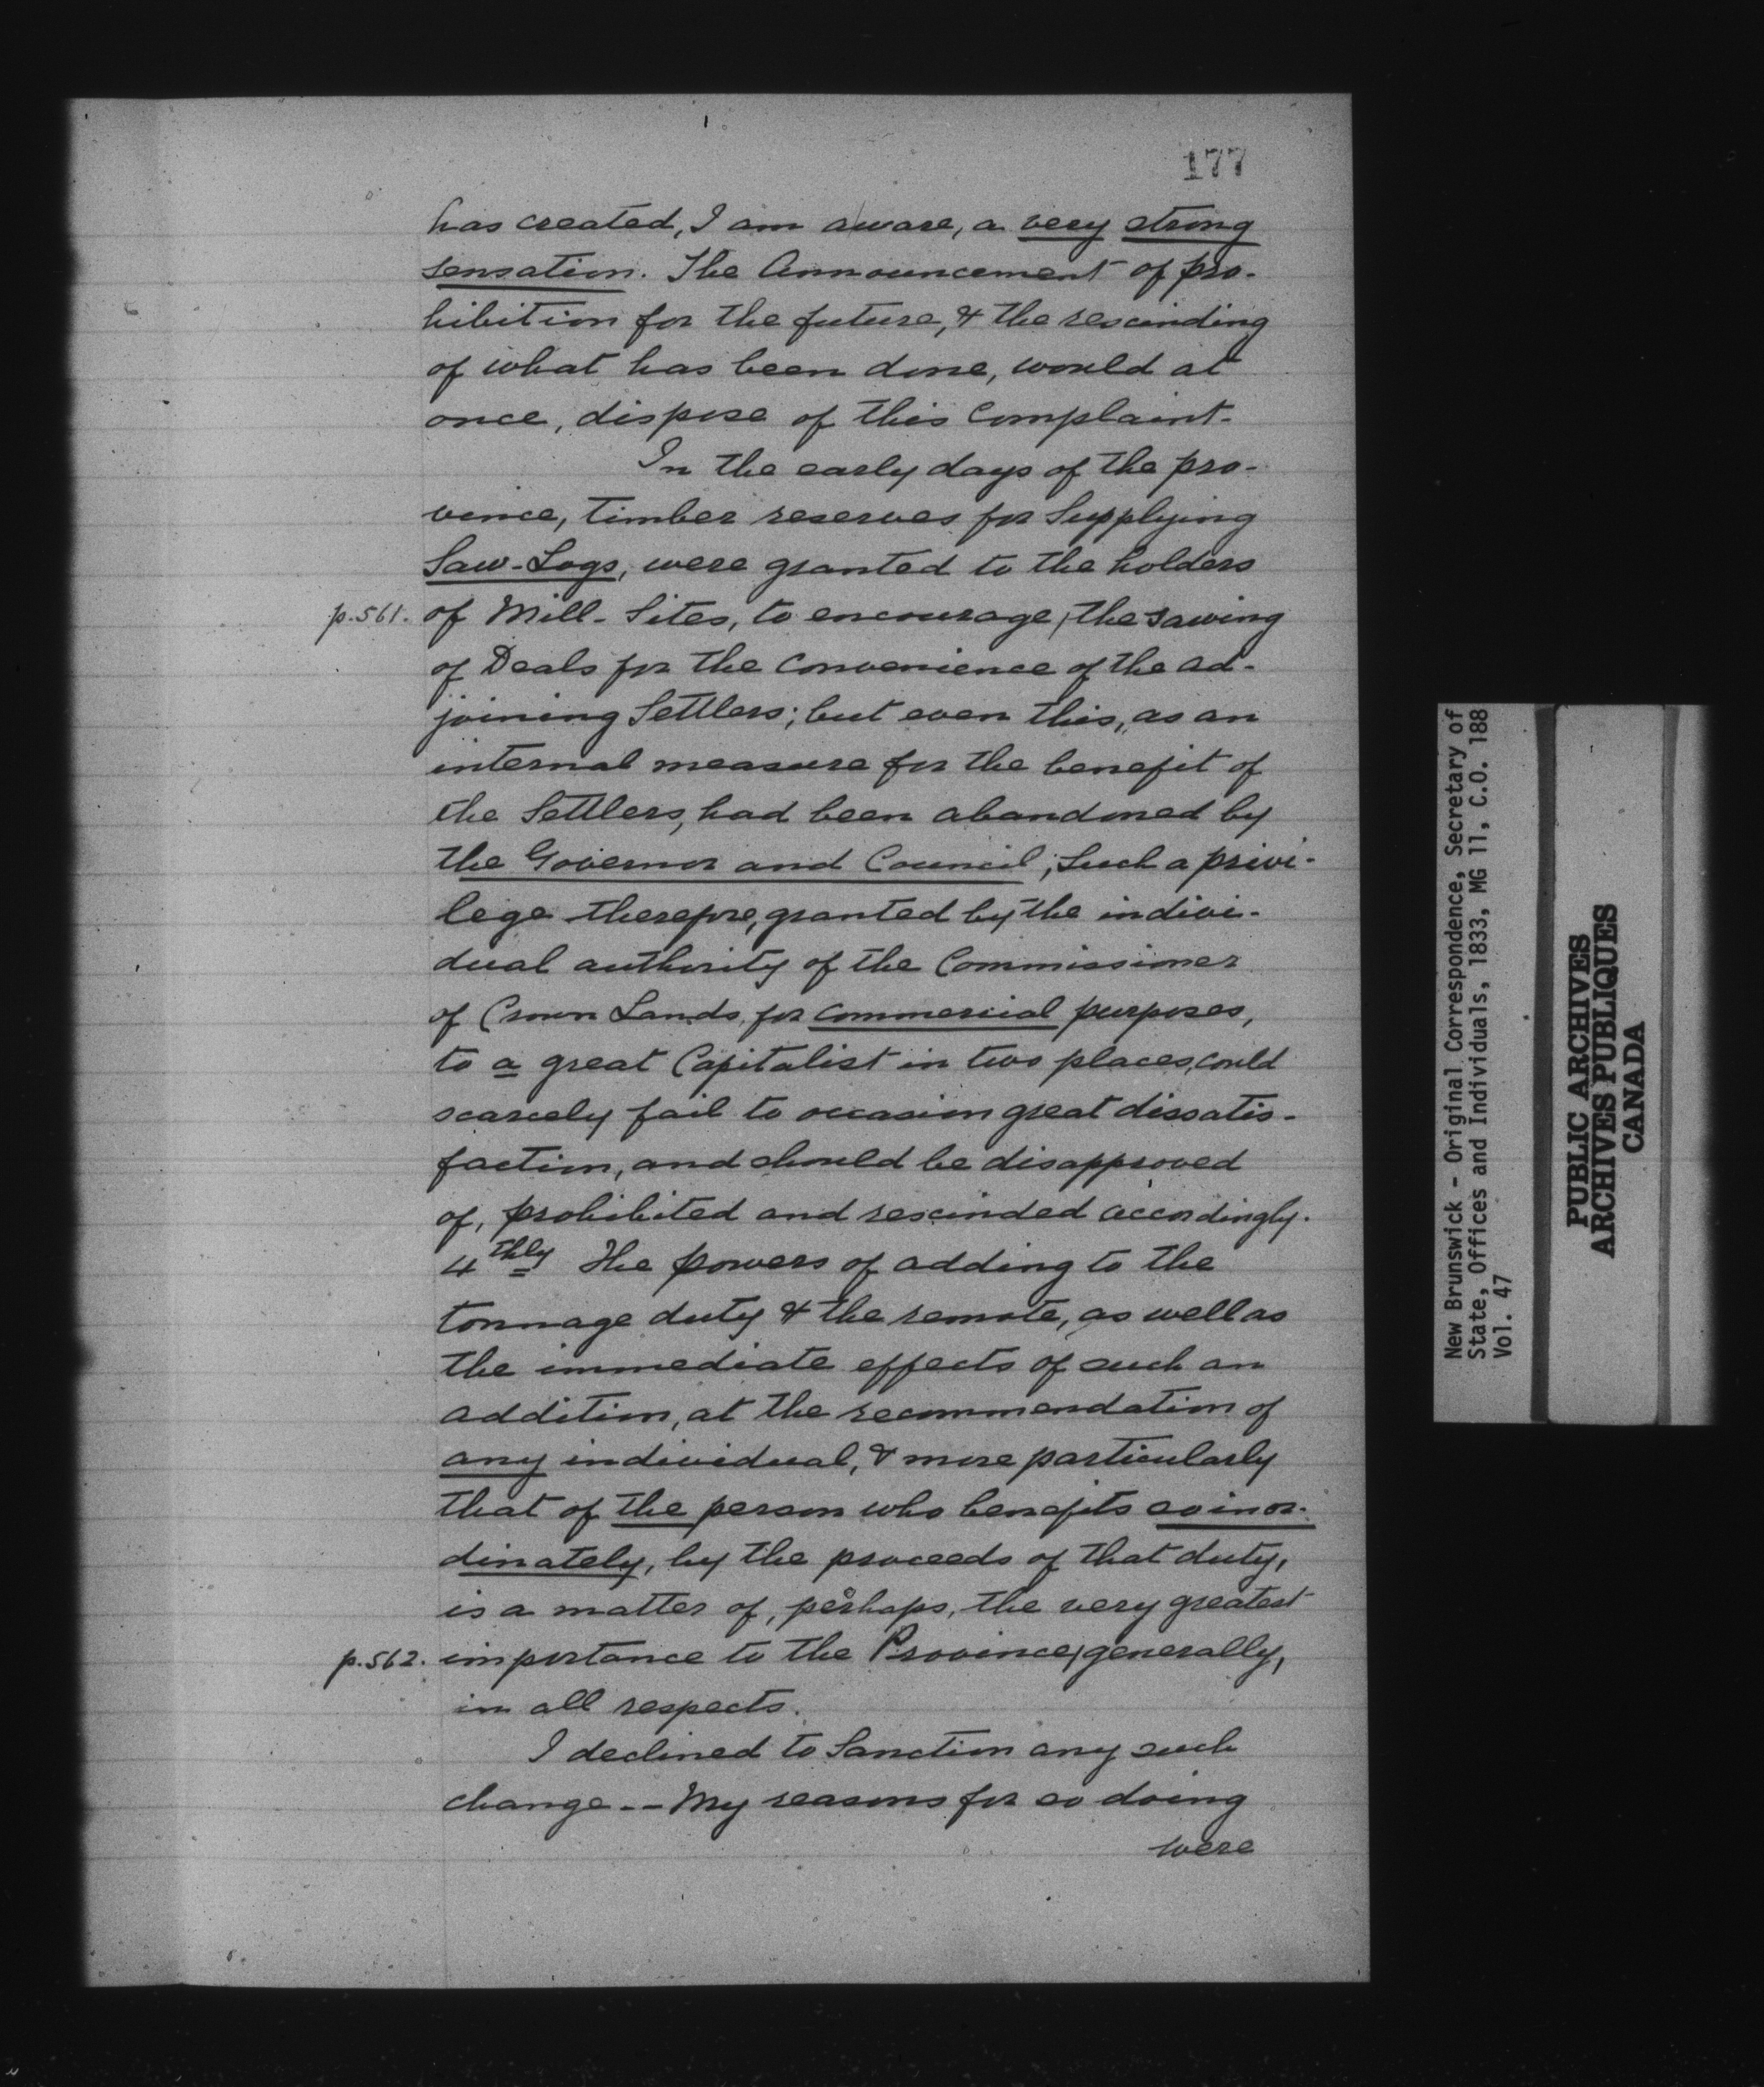 177
has created, I am aware, a very strong
sensation. The Announcement of pro-
hibition for the future, & the rescinding
of what has been done, would at
once, dispose of this Complaint.
In the early days of the pro-
vince, timber reserves for Supplying
Saw-Logs, were granted to the holders
p.561. of Mill-Sites, to encourage, the sawing
of Deals for the Convenience of the ad-
joining Settlers; but even this, as an
internal measure for the benefit of
the Settlers, had been abandoned by
the Governor and Council; Such a privi-
lege therefore, granted by the indivi-
dual authority of the Commissioner
of Crown Lands, for commercial purposes,
to a great Capitalist in two places, could
scarcely fail to occasion great dissatis-
faction, and should be disapproved
of, prohibited and rescinded accordingly.
4thly The powers of adding to the
tonnage duty & the remote, as well as
the immediate effects of such an
addition, at the recommendation of
any individual, & more particularly
that of the person who benefits so inor-
dinately, by the proceeds of that duty,
is a matter of, perhaps, the very greatest
p.562. importance to the Province, generally,
in all respects.
I declined to Sanction any such
change -- My reasons for so doing
were
New Brunswick - Original Correspondence, Secretary of
State, Offices and Individuals, 1833, MG 11, C.O. 188
Vol. 47
PUBLIC ARCHIVES
ARCHIVES PUBLIQUES
CANADA